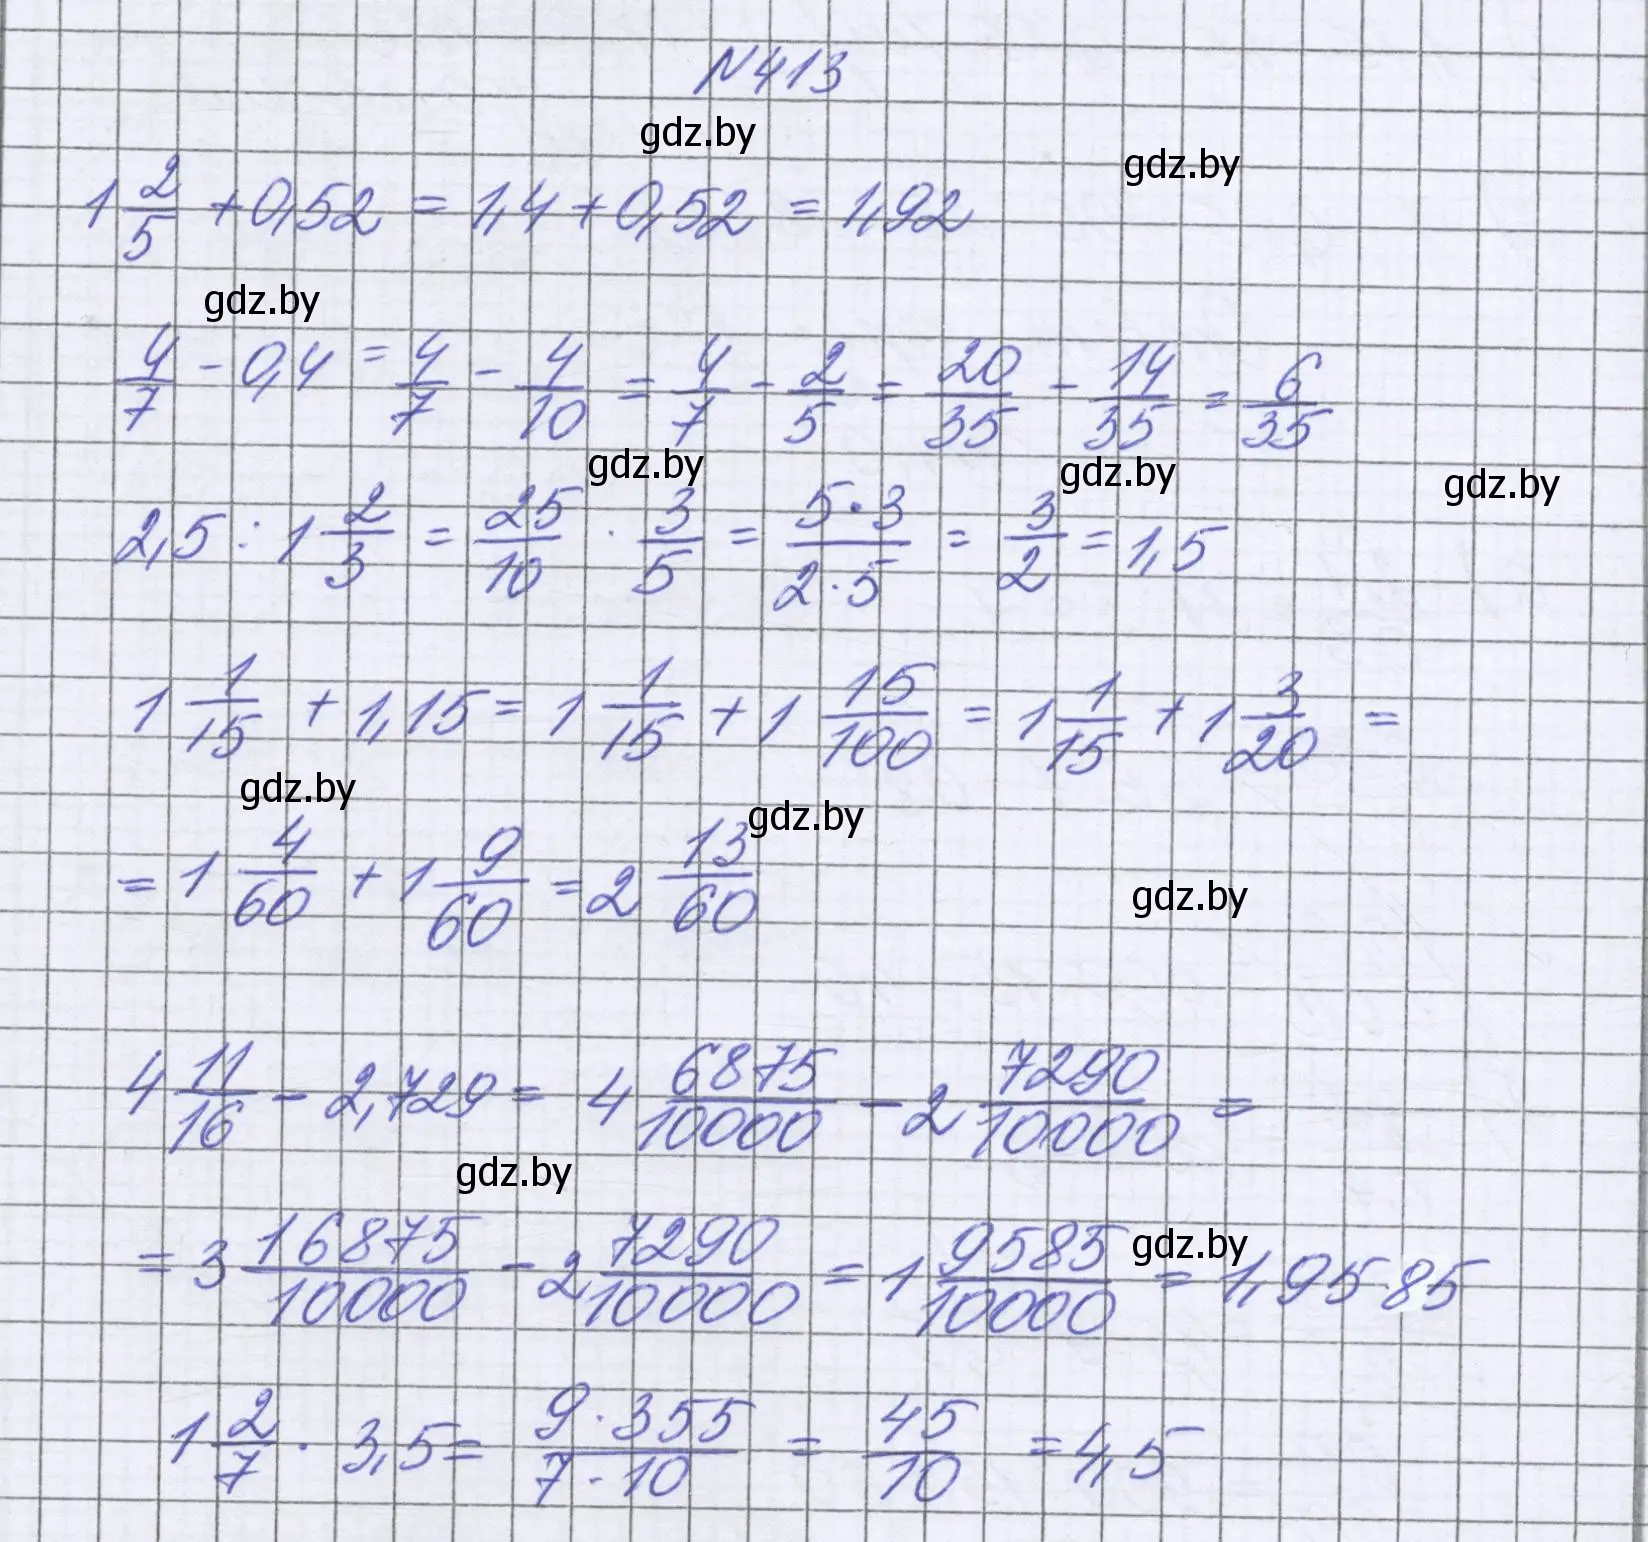 N413
gdz.by
gdz.by
1 2/5 + 0,52 = 1,4 + 0,52 = 1,92
gdz.by
4/7 - 0,4 = 4/7 - 4/10 = 4/7 - 2/5 = 20/35 - 14/35 = 6/35
gdz.by
gdz.by
gdz.by
2,5 : 1 2/3 = 25/10 · 3/5 = 5·3/2·5 = 3/2 = 1,5
1 1/15 + 1,15 = 1 1/15 + 1 15/100 = 1 1/15 + 1 3/20 =
gdz.by
gdz.by
= 1 4/60 + 1 9/60 = 2 13/60
gdz.by
4 11/16 - 2,729 = 4 6875/10000 - 2 7290/10000 =
gdz.by
= 3 16875/10000 - 2 7290/10000 = 1 9585/10000 = 1,9585
gdz.by
1 2/7 · 3,5 = 9·355/7·10 = 45/10 = 4,5